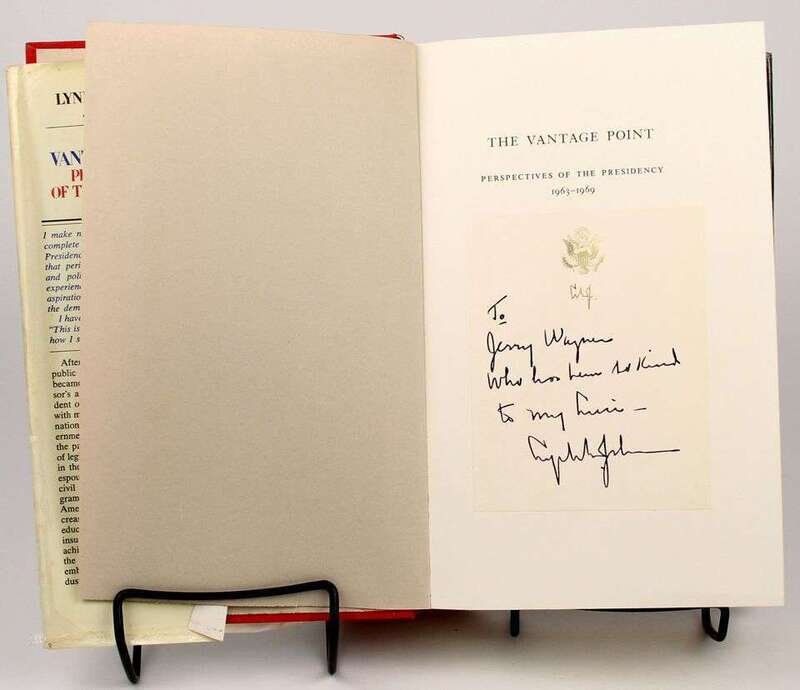 LYN
VAN
P
OF T
I make n
complete
Presidenc
that peri
and poli
experien
aspiratio
the dem
I have
"This is
how I s
After
public
became
sor's a
dent o
with m
nation
ernme
the pa
of leg
in the
espou
civil
gram
Ame
creas
educ
insu
achi
the
emb
dus
THE VANTAGE POINT
PERSPECTIVES OF THE PRESIDENCY
1963–1969
LBJ.
To
Jerry Wagner
Who has been so kind
to my Luci –
Lyndon B. Johnson